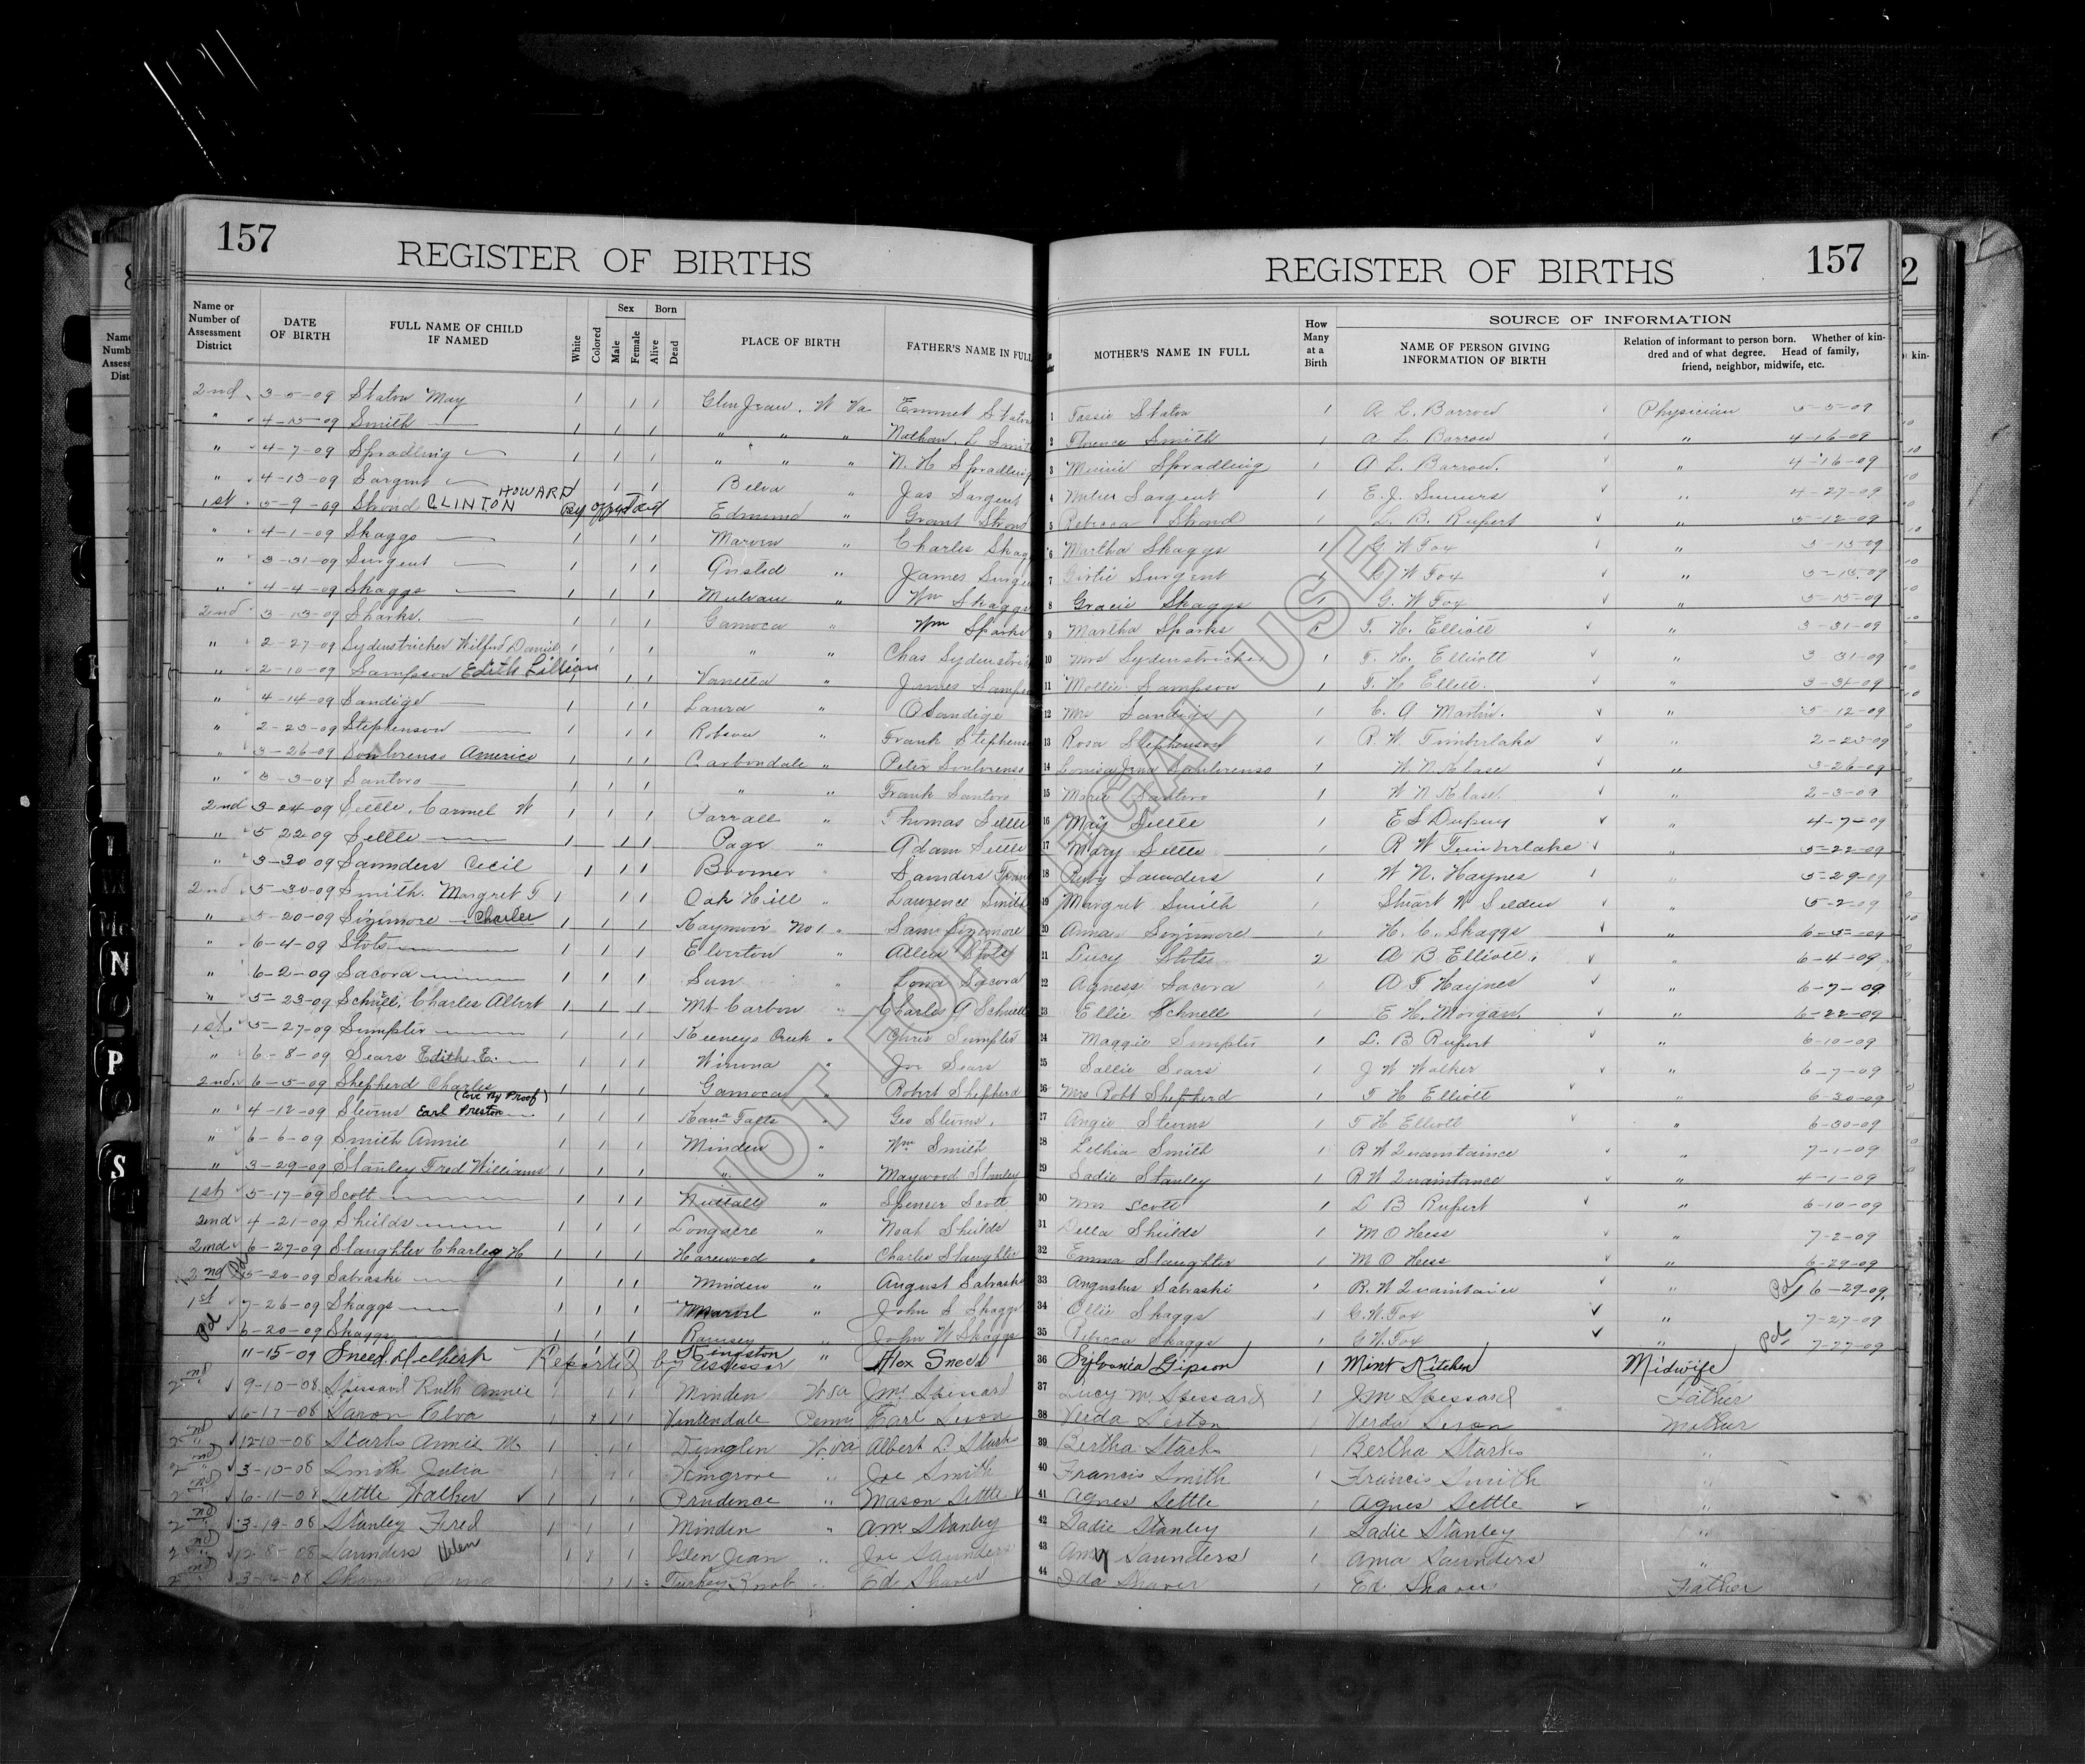 157
REGISTER OF BIRTHS
REGISTER OF BIRTHS
157
Name or Number of Assessment District
DATE OF BIRTH
FULL NAME OF CHILD IF NAMED
White
Colored
Sex
Male
Female
Born
Alive
Dead
PLACE OF BIRTH
FATHER'S NAME IN FULL
MOTHER'S NAME IN FULL
How Many at a Birth
SOURCE OF INFORMATION
NAME OF PERSON GIVING INFORMATION OF BIRTH
Relation of informant to person born. Whether of kindred and of what degree. Head of family, friend, neighbor, midwife, etc.
2nd 3-5-09 Staton May Glen Jean, W Va Emmet Staton 1 Staton 1 A. L. Barrow Physician 5-5-09
" 4-15-09 Smith " " " Nathan L Smith 2 Florence Smith 1 A L Barrow " 4-16-09
" 4-7-09 Spradling " " " N. H Spradling 3 Minnie Spradling 1 A L. Barrow. " 4-16-09
" 4-13-09 Sargent Belva " Jas Sargent 4 Sargent 1 E. J. Summers " 4-27-09
1st 5-9-09 Stroud CLINTON HOWARD Edmund " Grant Stroud 5 Rebecca Stroud 1 L. B. Rupert " 5-12-09
" 4-1-09 Skaggs " Charles Skaggs 6 Martha Skaggs 1 G W Fox " 5-15-09
" 3-31-09 Surgent Ansted " James Surgent 7 Girtie Surgent 1 G W Fox " 5-15-09
" 4-4-09 Skaggs " Wm Skaggs 8 Gracie Skaggs 1 G. W Fox " 5-15-09
2nd 3-13-09 Sparks. Gamoca " Wm Sparks 9 Martha Sparks 1 T. H. Elliott " 3-31-09
" 2-27-09 Sydenstricker Wilfred Daniel " " Chas Sydenstricker 10 Mrs Sydenstricker 1 T. H. Elliott " 3 31-09
" 2-10-09 Sampson Edith Lillian Vanetta " James Sampson 11 Mollie Sampson 1 T. H Elliott. " 3-31-09
" 4-14-09 Sandige Laura " O Sandige 12 Mrs Sandige 1 C. A Martin. " 5-12-09
" 2-23-09 Stephenson Robson " Frank Stephenson 13 Rosa Stephenson 1 R. W. Timberlake " 2-23-09
" 3-26-09 Americo Carbondale " Peter 14 1 W. N. Klase " 3-26-09
" 3-3-09 Santoro " " Frank Santoro 15 Marie Santoro 1 W N Klase. 2-3-09
2nd 3-24-09 Settle, Carmel W Parrall " Thomas Settle 16 May Settle 1 E S Dupuy " 4-7-09
" 5 22 09 Settle Page " Adam Settle 17 Mary Settle 1 R W Timberlake " 5-22-09
" 3-30 09 Saunders Cecil Boomer " Saunders Frank 18 Ruby Saunders 1 W N. Haynes " 5-29-09
2nd 5-30-09 Smith. Margret T Oak Hill " Lawrence Smith 19 Margret Smith 1 Stuart W Selden " 5-2-09
" 5-20-09 Sizemore Charles Kaymoor No 1. " Sam Sizemore 20 Anna Sizemore 1 H. C. Skaggs " 6-5-09
" 6-4-09 Stots Elverton " Allen Stots 21 Lucy Stots 2 A B Elliott. " 6-4-09
" 6-2-09 Sacora Sun " Sacora 22 Agness Sacora 1 A T Haynes " 6-7-09
" 5-23-09 Schnell, Charles Albert Mt Carbon " Charles A Schnell 23 Ellie Schnell 1 E. H. Morgan. " 6-22-09
1st. 5-27-09 Sumpter Keeneys Creek " Chris Sumpter 24 Maggie Sumpter 1 L. B Rupert " 6-10-09
" 6-8-09 Sears Edith E. Winona " Joe Sears 25 Sallie Sears 1 J W Walker " 6-7-09
2nd. 6-5-09 Shepherd Charles Gamoca " Robert Shepherd 26 Mrs Robt Shepherd 1 T H Elliott " 6-30-09
" 4-12-09 Stevens Earl Preston (Cor. By Proof) Kana Falls " Geo Stevens. 27 Angie Stevens 1 T H Elliott " 6-30-09
" 6-6-09 Smith Annie Minden " Wm Smith 28 Lethia Smith 1 R W Quaintaince 7-1-09
" 3-29-09 Stanley Fred Williams " " Maywood Stanley 29 Sadie Stanley 1 R W Quaintance " 4-1-09
1st 5-17-09 Scott Nuttall " Spencer Scott 30 Mrs Scott 1 L B Rupert " 6-10-09
2nd 4-21-09 Shields Longacre " Noah Shields 31 Della Shields 1 M O Hess " 7-2-09
2nd 6-27-09 Slaughter Charley H Harewood " Charles Slaughter 32 Emma Slaughter 1 M O Hess " 6-29-09
2nd Pd 5-20-09 Sabraski Minden " August Sabraski 33 Augustus Sabraski 1 R. W Quaintaince " Pd 6-29-09.
1st 7-26-09 Skaggs Marvel " John S Skaggs 34 Ollie Skaggs 1 G. W. Fox " 7-27-09
Pd 6-20-09 Skaggs Ramsey " John W Skaggs 35 Rebecca Skaggs 1 G W. Fox " Pd 7-27-09
11-15-09 Sneed Delbert Reported by Assessor Kingston " Alex Sneed 36 Sylvania Gipson 1 Mint Kitchen Midwife
2nd 9-10-08 Spessard Ruth Annie Minden W Va J M Spessard 37 Lucy M Spessard 1 J M Spessard Father
6-17-08 Saxon Elva Vintondale Penn Earl 38 Verda 1 Verda Mother
2nd 12-10-08 Stark Annie M. Dunglen W. Va Albert D. Stark 39 Bertha Stark 1 Bertha Stark "
2nd 3-10-08 Smith Julia Wingrove " Joe Smith 40 Francis Smith 1 Francis Smith "
2nd 6-11-08 Settle Walker Prudence " Mason Settle 41 Agnes Settle 1 Agnes Settle "
2nd 3-19-08 Stanley Fred Minden " A M Stanley 42 Sadie Stanley 1 Sadie Stanley "
2nd 12-8-08 Saunders Helen Glen Jean " Joe Saunders 43 Amy Saunders 1 Ama Saunders "
2nd 08 Shaver Turkey Knob " Ed Shaver 44 Ida Shaver 1 Ed. Shaver Father
NOT FOR LEGAL USE